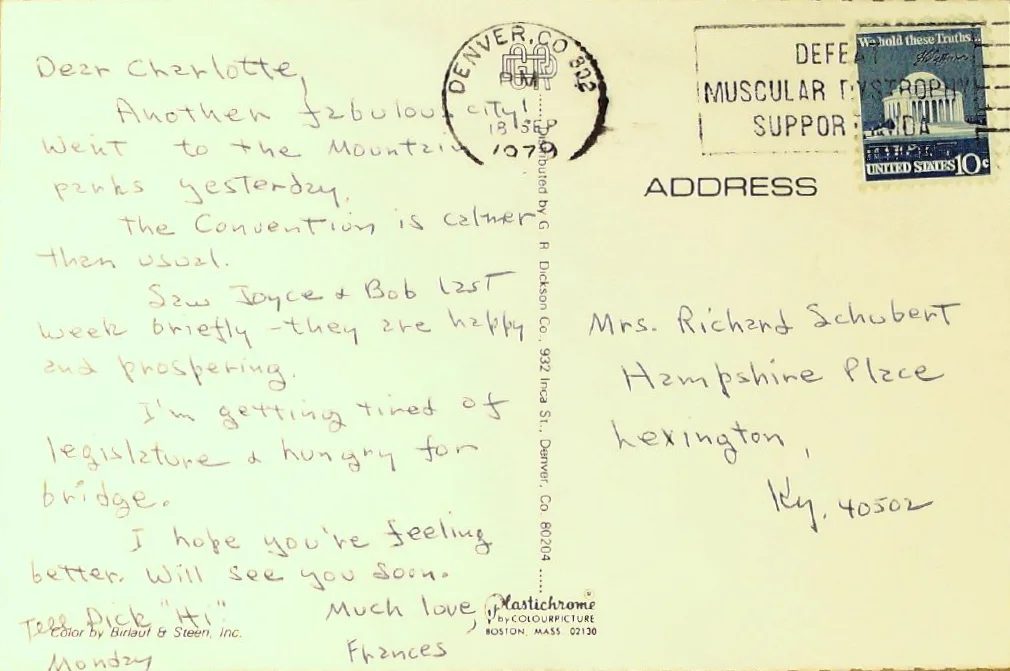 Dear Charlotte,
Another fabulous city!
Went to the Mountain
parks yesterday.
The Convention is calmer
than usual.
Saw Joyce & Bob last
week briefly - they are happy
and prospering.
I'm getting tired of
legislature & hungry for
bridge.
I hope you're feeling
better. Will see you soon.
Tell Dick "Hi"
Much love,
Frances
Monday
Color by Birlauf & Steen, Inc.
Distributed by G. R. Dickson Co., 932 Inca St., Denver, Co. 80204
Plastichrome®
by COLOURPICTURE
BOSTON, MASS. 02130
DENVER, CO 802
PM
18 SEP
1979
DEFEAT
MUSCULAR DYSTROPHY
SUPPORT MDA
We hold these Truths...
UNITED STATES 10c
ADDRESS
Mrs. Richard Schubert
Hampshire Place
Lexington,
Ky. 40502